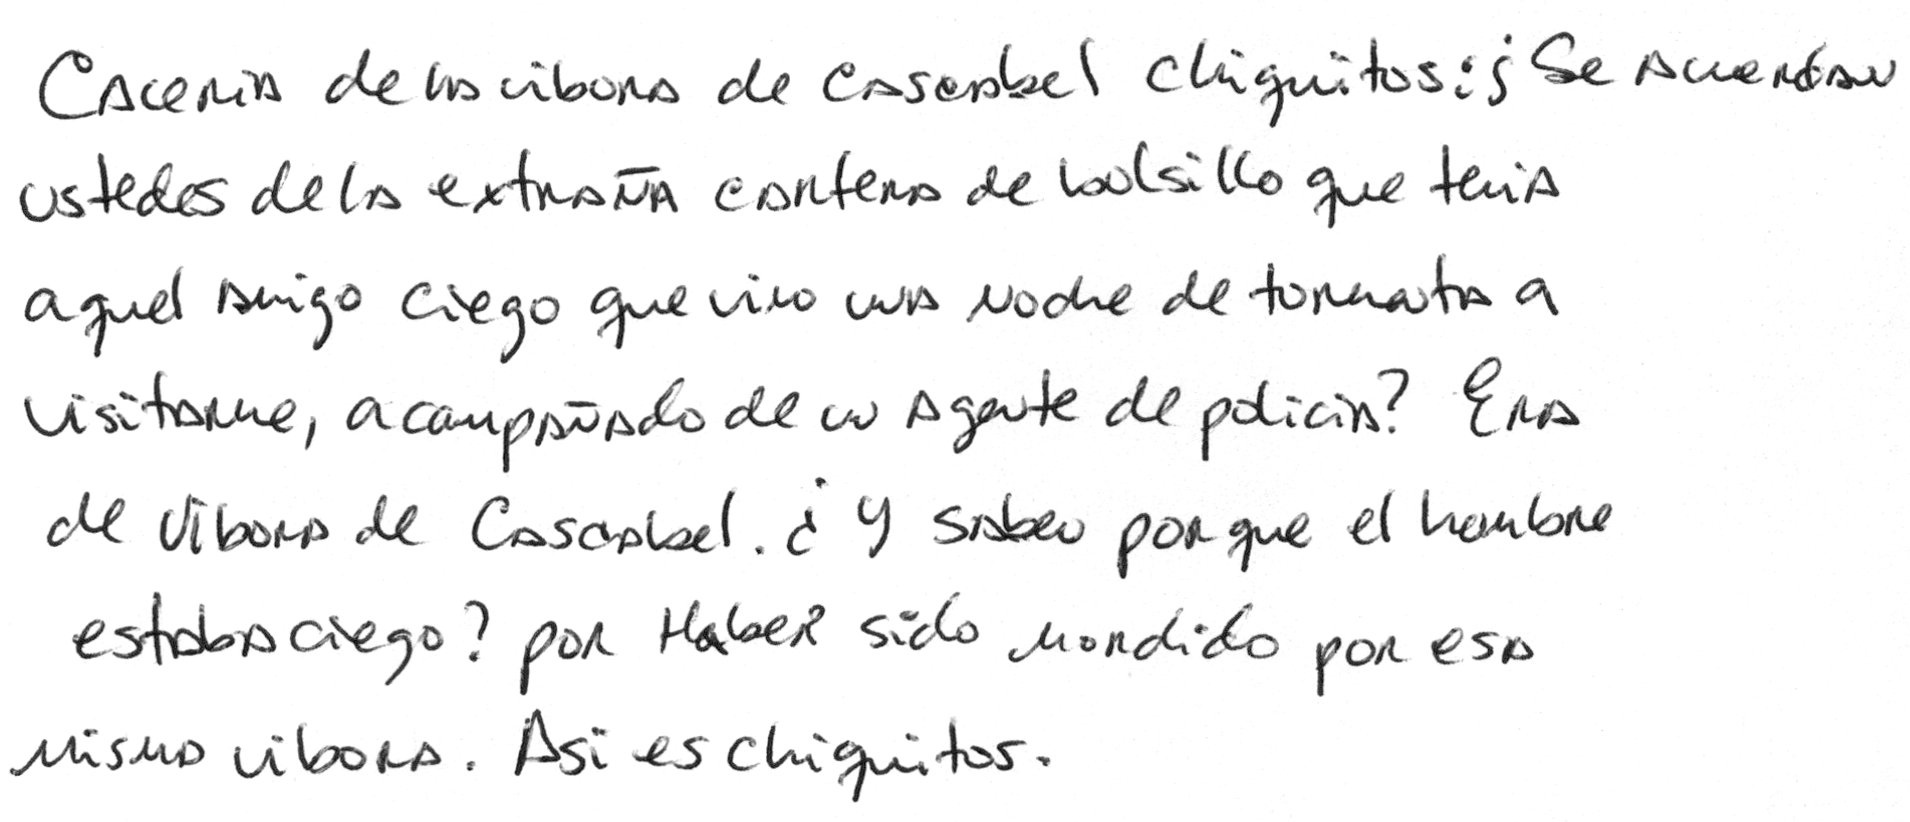 Caceria de la vibora de cascabel chiquitos: ¿Se acuerdan
ustedes de la extraña cartera de bolsillo que tenia
aquel amigo ciego que vino una noche de tormenta a
visitarme, acompañado de un agente de policia? Era
de vibora de Cascabel. ¿Y saben porque el hombre
estaba ciego? por Haber sido mordido por esa
misma vibora. Asi es chiquitos.